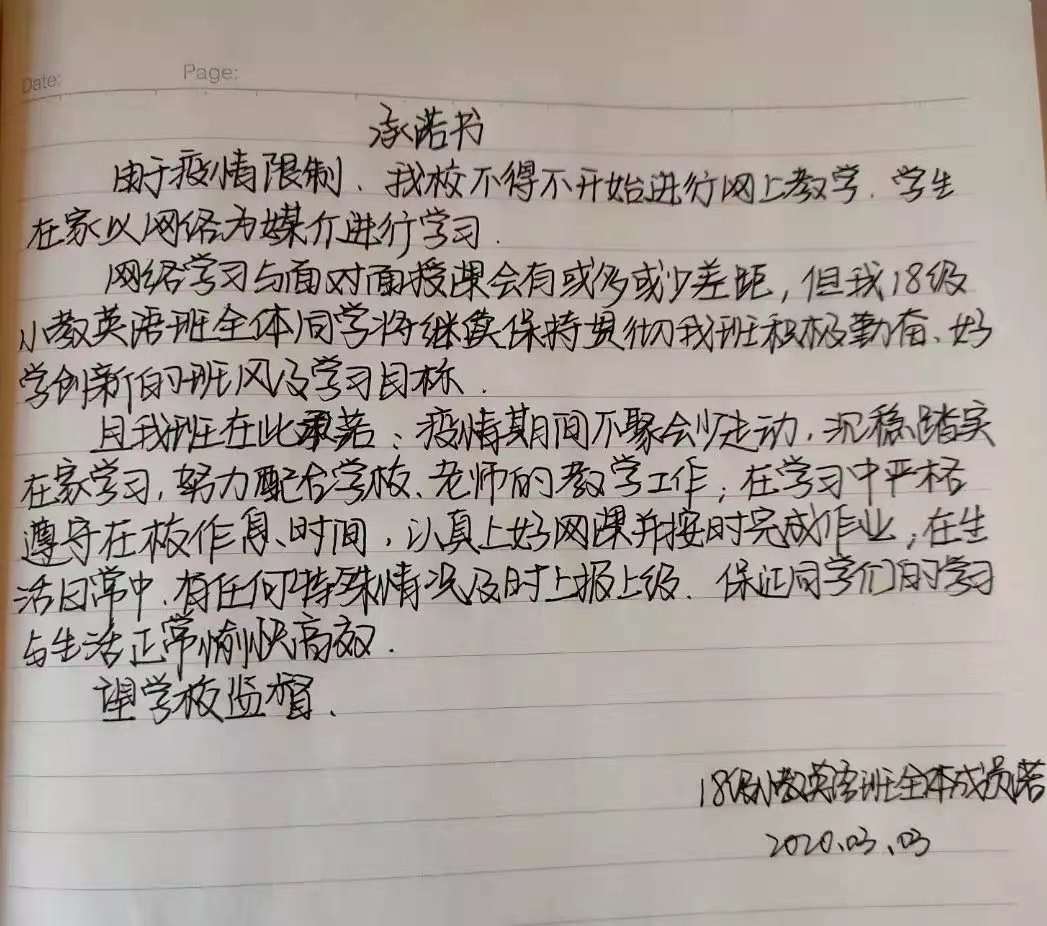 Date:
Page:
承诺书
由于疫情限制、我校不得不开始进行网上教学.学生
在家以网络为媒介进行学习.
网络学习与面对面授课会有或多或少差距，但我18级
小教英语班全体同学将继续保持贯彻我班积极勤奋、好
学创新的班风及学习目标.
且我班在此承诺：疫情期间不聚会少走动.沉稳踏实
在家学习,努力配合学校、老师的教学工作；在学习中严格
遵守在校作息、时间，认真上好网课并按时完成作业；在生
活日常中.有任何特殊情况及时上报上级.保证同学们的学习
与生活正常愉快高效.
望学校监督.
18级小教英语班全体成员诺
2020.03.03